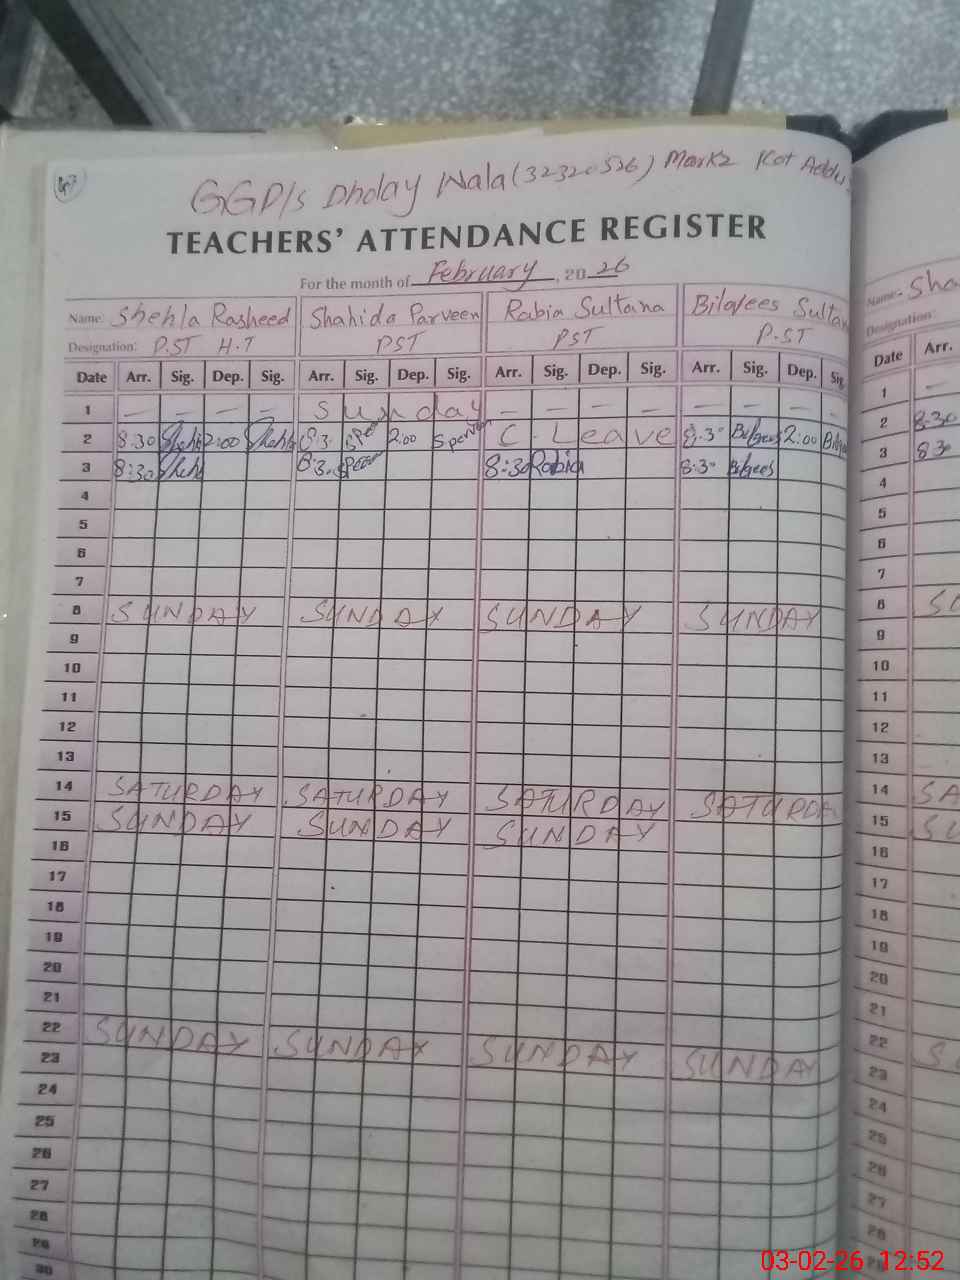 GGP/s Dholay Wala (32320536) Markz Kot Addu
TEACHERS' ATTENDANCE REGISTER
For the month of February, 20 26
Name: Shehla Rasheed Shahida Parveen Rabia Sultana Bilqees Sultan Name:- Sha
Designation: P.ST H.T PST PST P.ST Designation:
Date Arr. Sig. Dep. Sig. Arr. Sig. Dep. Sig. Arr. Sig. Dep. Sig. Arr. Sig. Dep. Sig Date Arr.
1 — — — — Sunday — — — — — — — — 1 —
2 8:30 Shehla 2:00 Shehla 8:3° 2:00 C. Leave 8:3° Bilqees 2:00 Bilqe 2 8:30
3 8:30 Shehla 8:3° 8:30 Rabia 8:3° Bilqees 3 8:30
4 4
5 5
6 6
7 7
8 SUNDAY SUNDAY SUNDAY SUNDAY 8 SU
9 9
10 10
11 11
12 12
13 13
14 SATURDAY SATURDAY SATURDAY SATURDA 14 SA
15 SUNDAY SUNDAY SUNDAY 15 SU
16 16
17 17
18 18
19 19
20 20
21 21
22 SUNDAY SUNDAY SUNDAY SUNDAY 22 SU
23 23
24 24
25 25
26 26
27 27
28 28
29
30
03-02-26 12:52